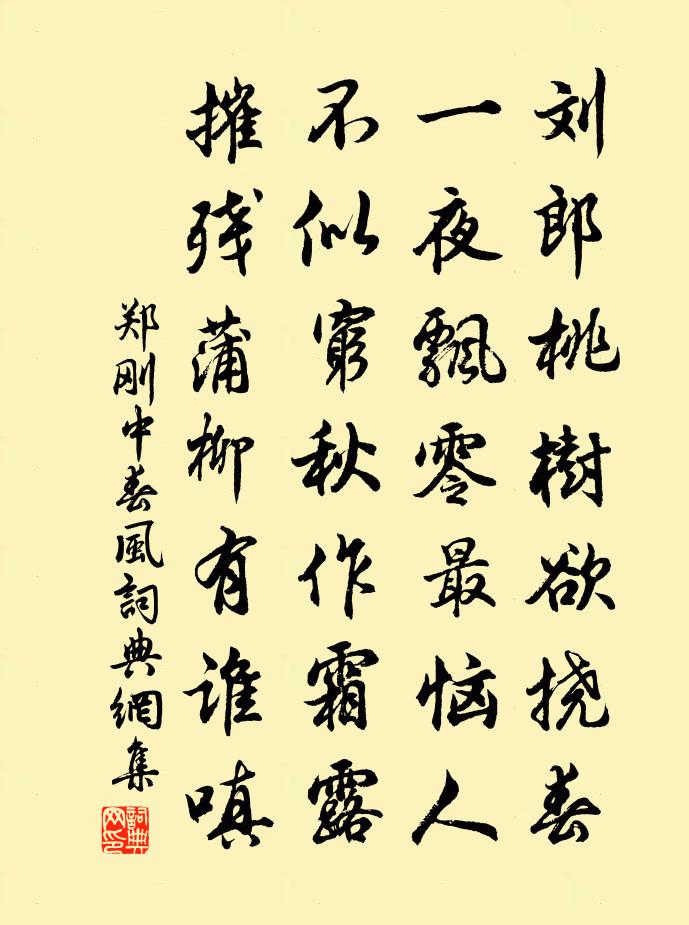 刘郎桃樹欲挠春
一夜飄零最恼人
不似窮秋作霜露
摧残蒲柳有谁嗔
郑刚中春風詞典網集
詞典
网印